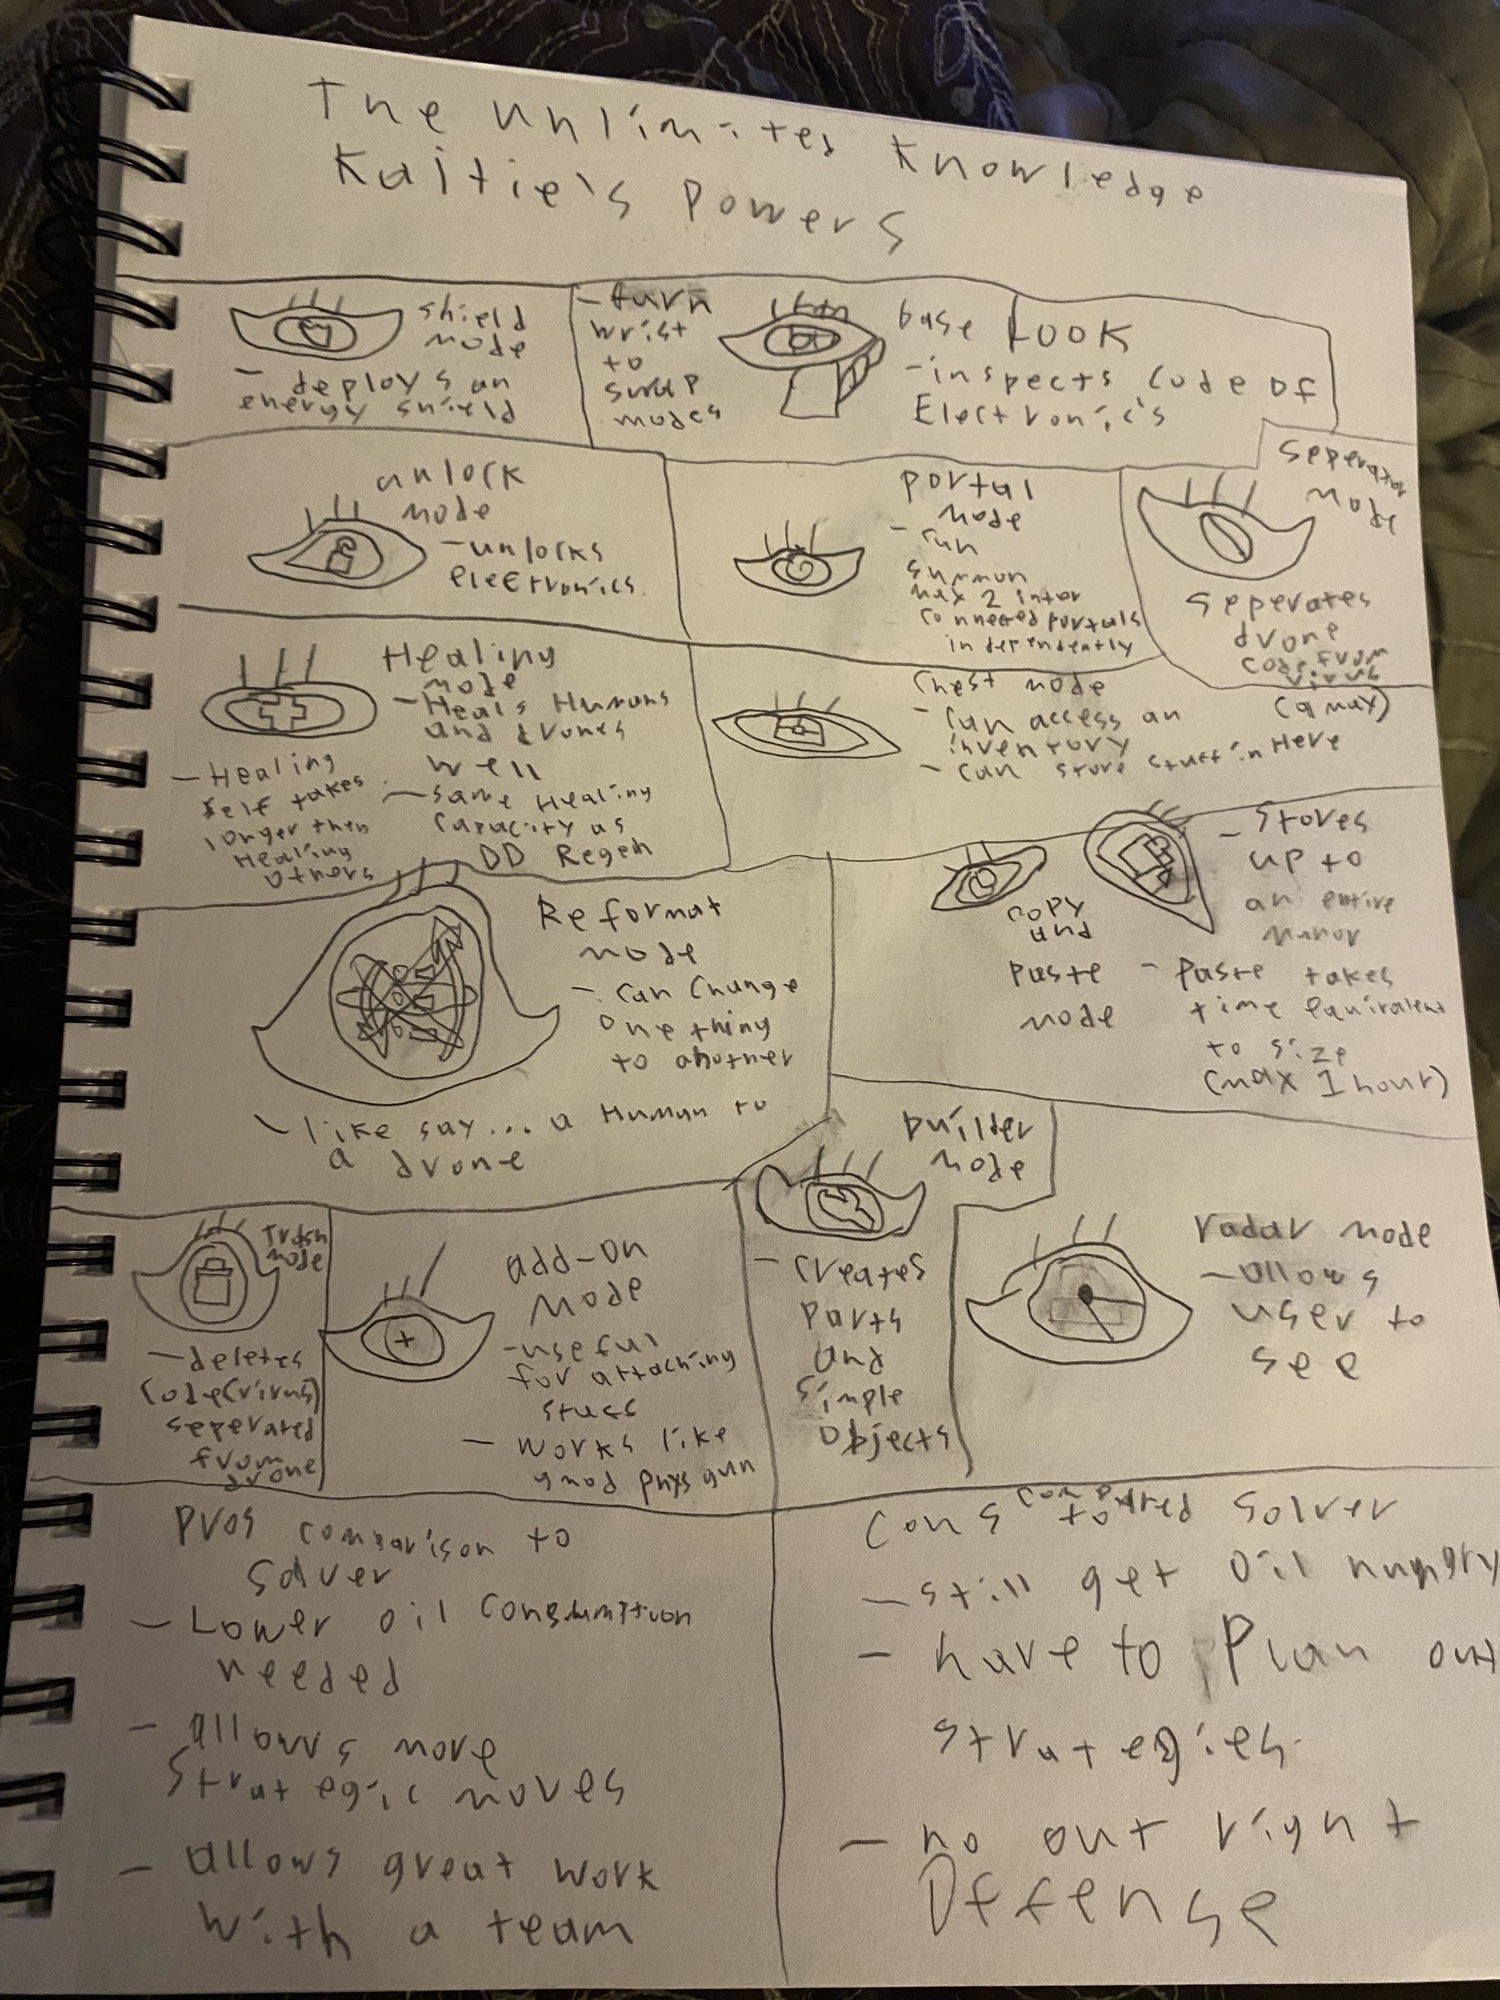 The unlimites knowledge
Kaitie's Powers
shield
mode
- deploys an
energy shield
- turn
wrist
to
swap
modes
base LOOK
- inspects code of
Electronic's
unlock
mode
- unlocks
electronics
portal
mode
- can
summon
max 2 inter
connected portals
independently
Seperator
mode
seperates
drone
code from
virus
(9 max)
Healing
mode
- Heals Humans
and drones
well
- same Healing
capacity as
DD Regen
- Healing
self takes
longer then
Healing
others
chest mode
- can access an
inventory
- can store stuff in Here
Reformat
mode
- can change
one thing
to another
- like say... a Human to
a drone
copy
and
paste
mode
- Stores
up to
an entire
manor
- paste takes
time equivalent
to size
(max 1 hour)
Trash
mode
- deletes
code(virus)
seperated
from
drone
add-on
mode
- useful
for attaching
stuff
- works like
gmod physgun
builder
mode
- creates
parts
and
simple
objects
radar mode
- allows
user to
see
pros comparison to
solver
- Lower oil consumition
needed
- allows more
strategic moves
- allows great work
with a team
cons compared
to solver
- still get oil hungry
- have to plan out
strategies.
- no out right
Offense